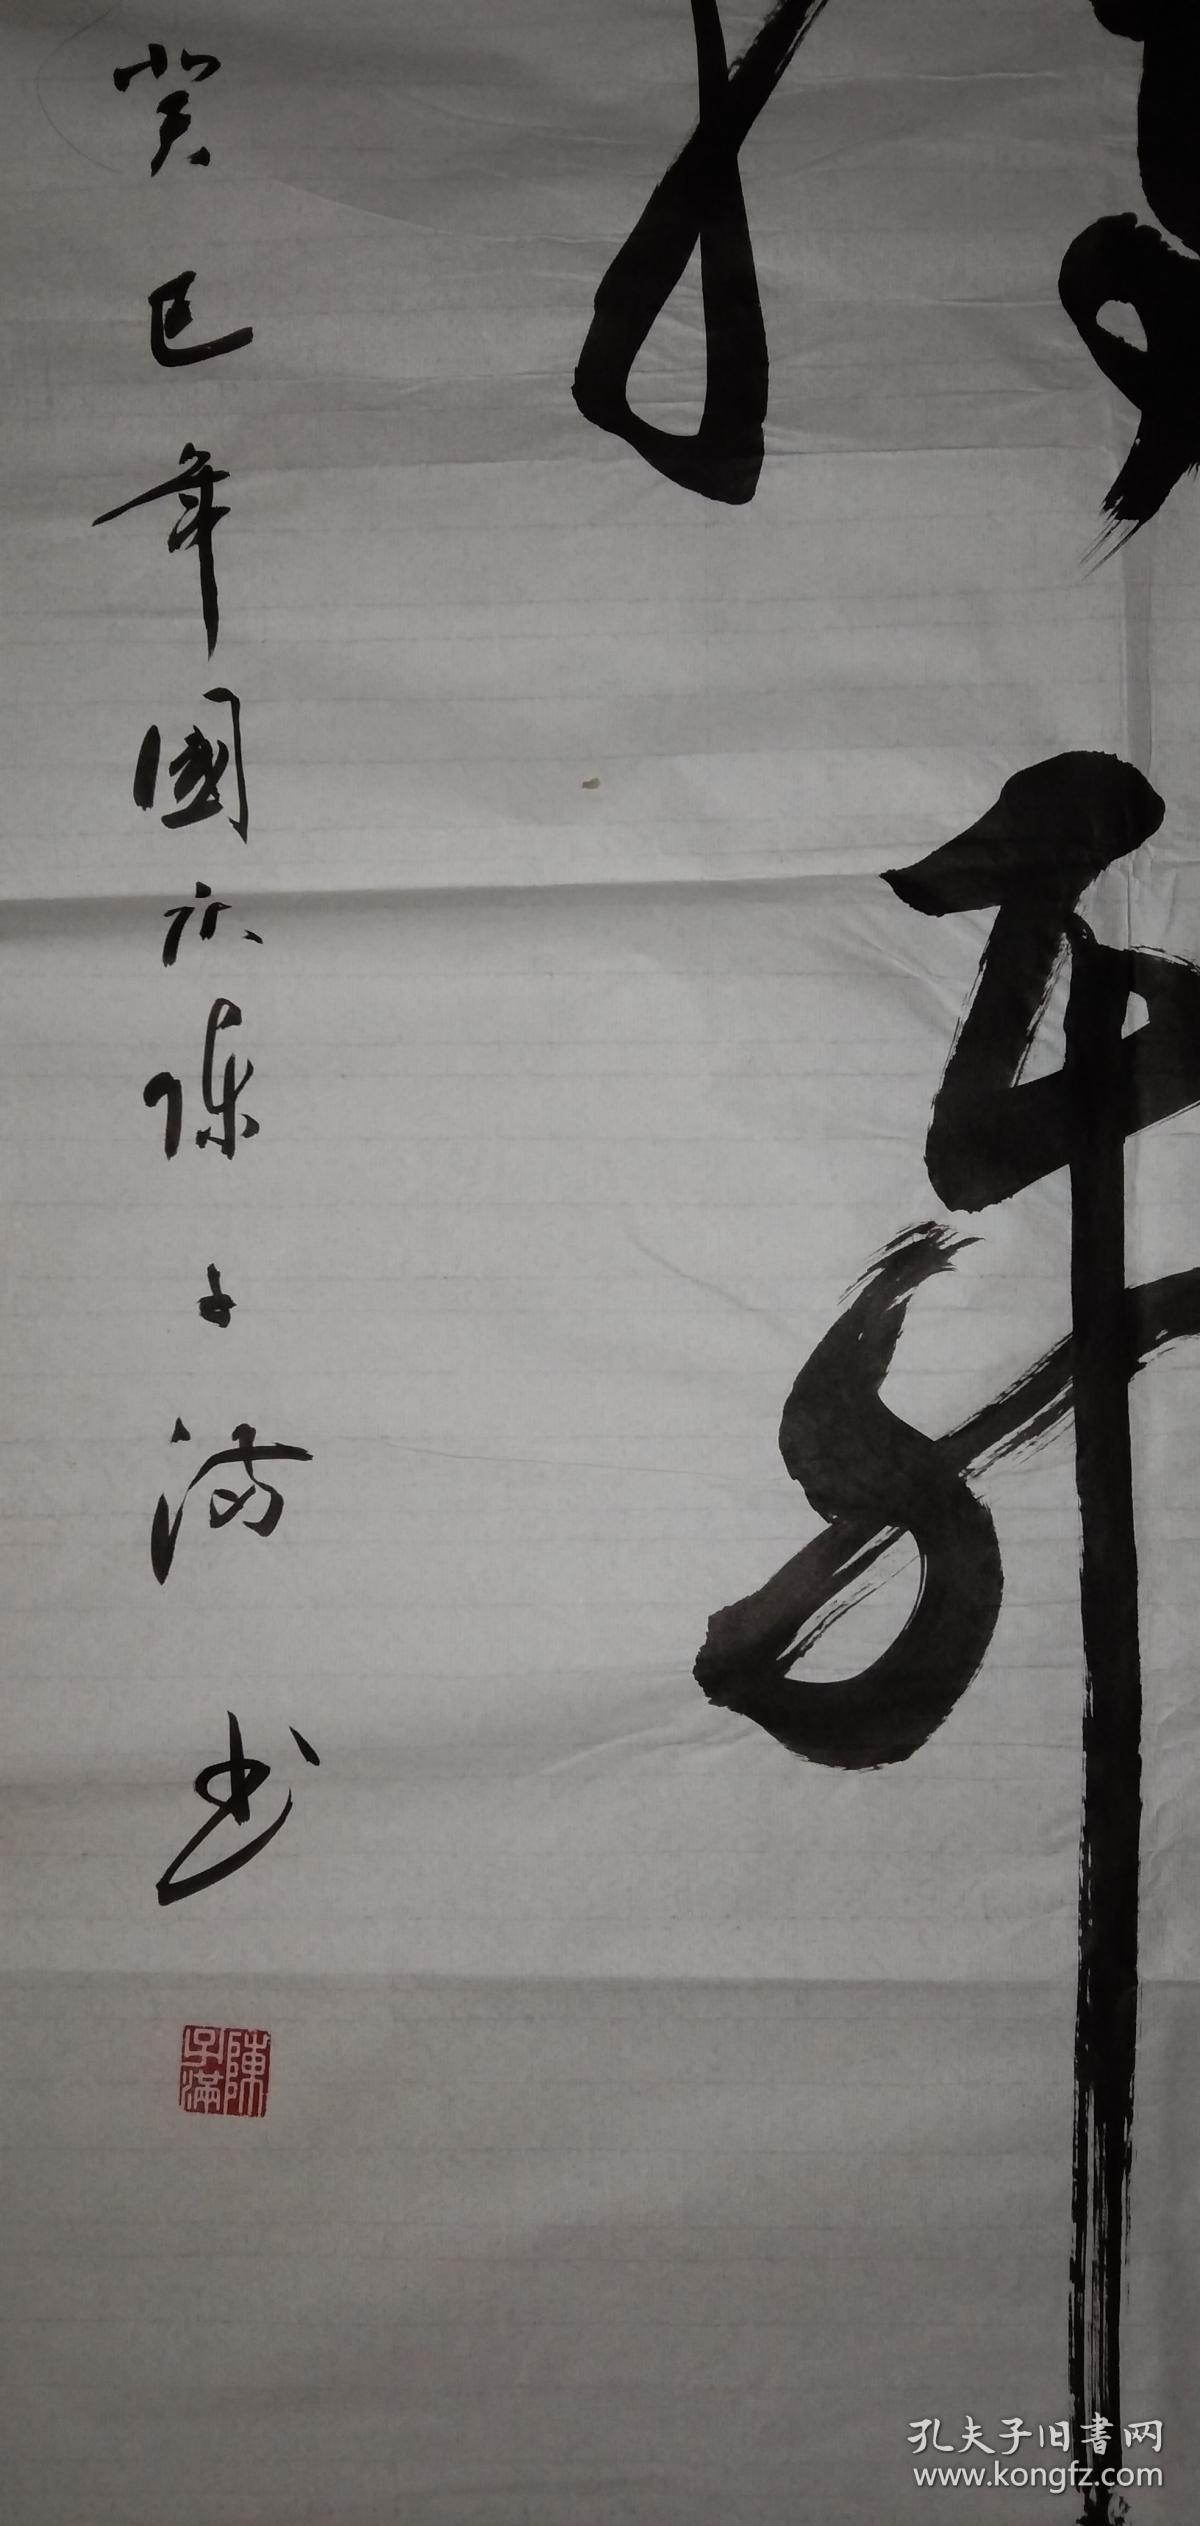 癸巳年國庆陈子滿书
陳子滿
孔夫子旧書网
www.kongfz.com